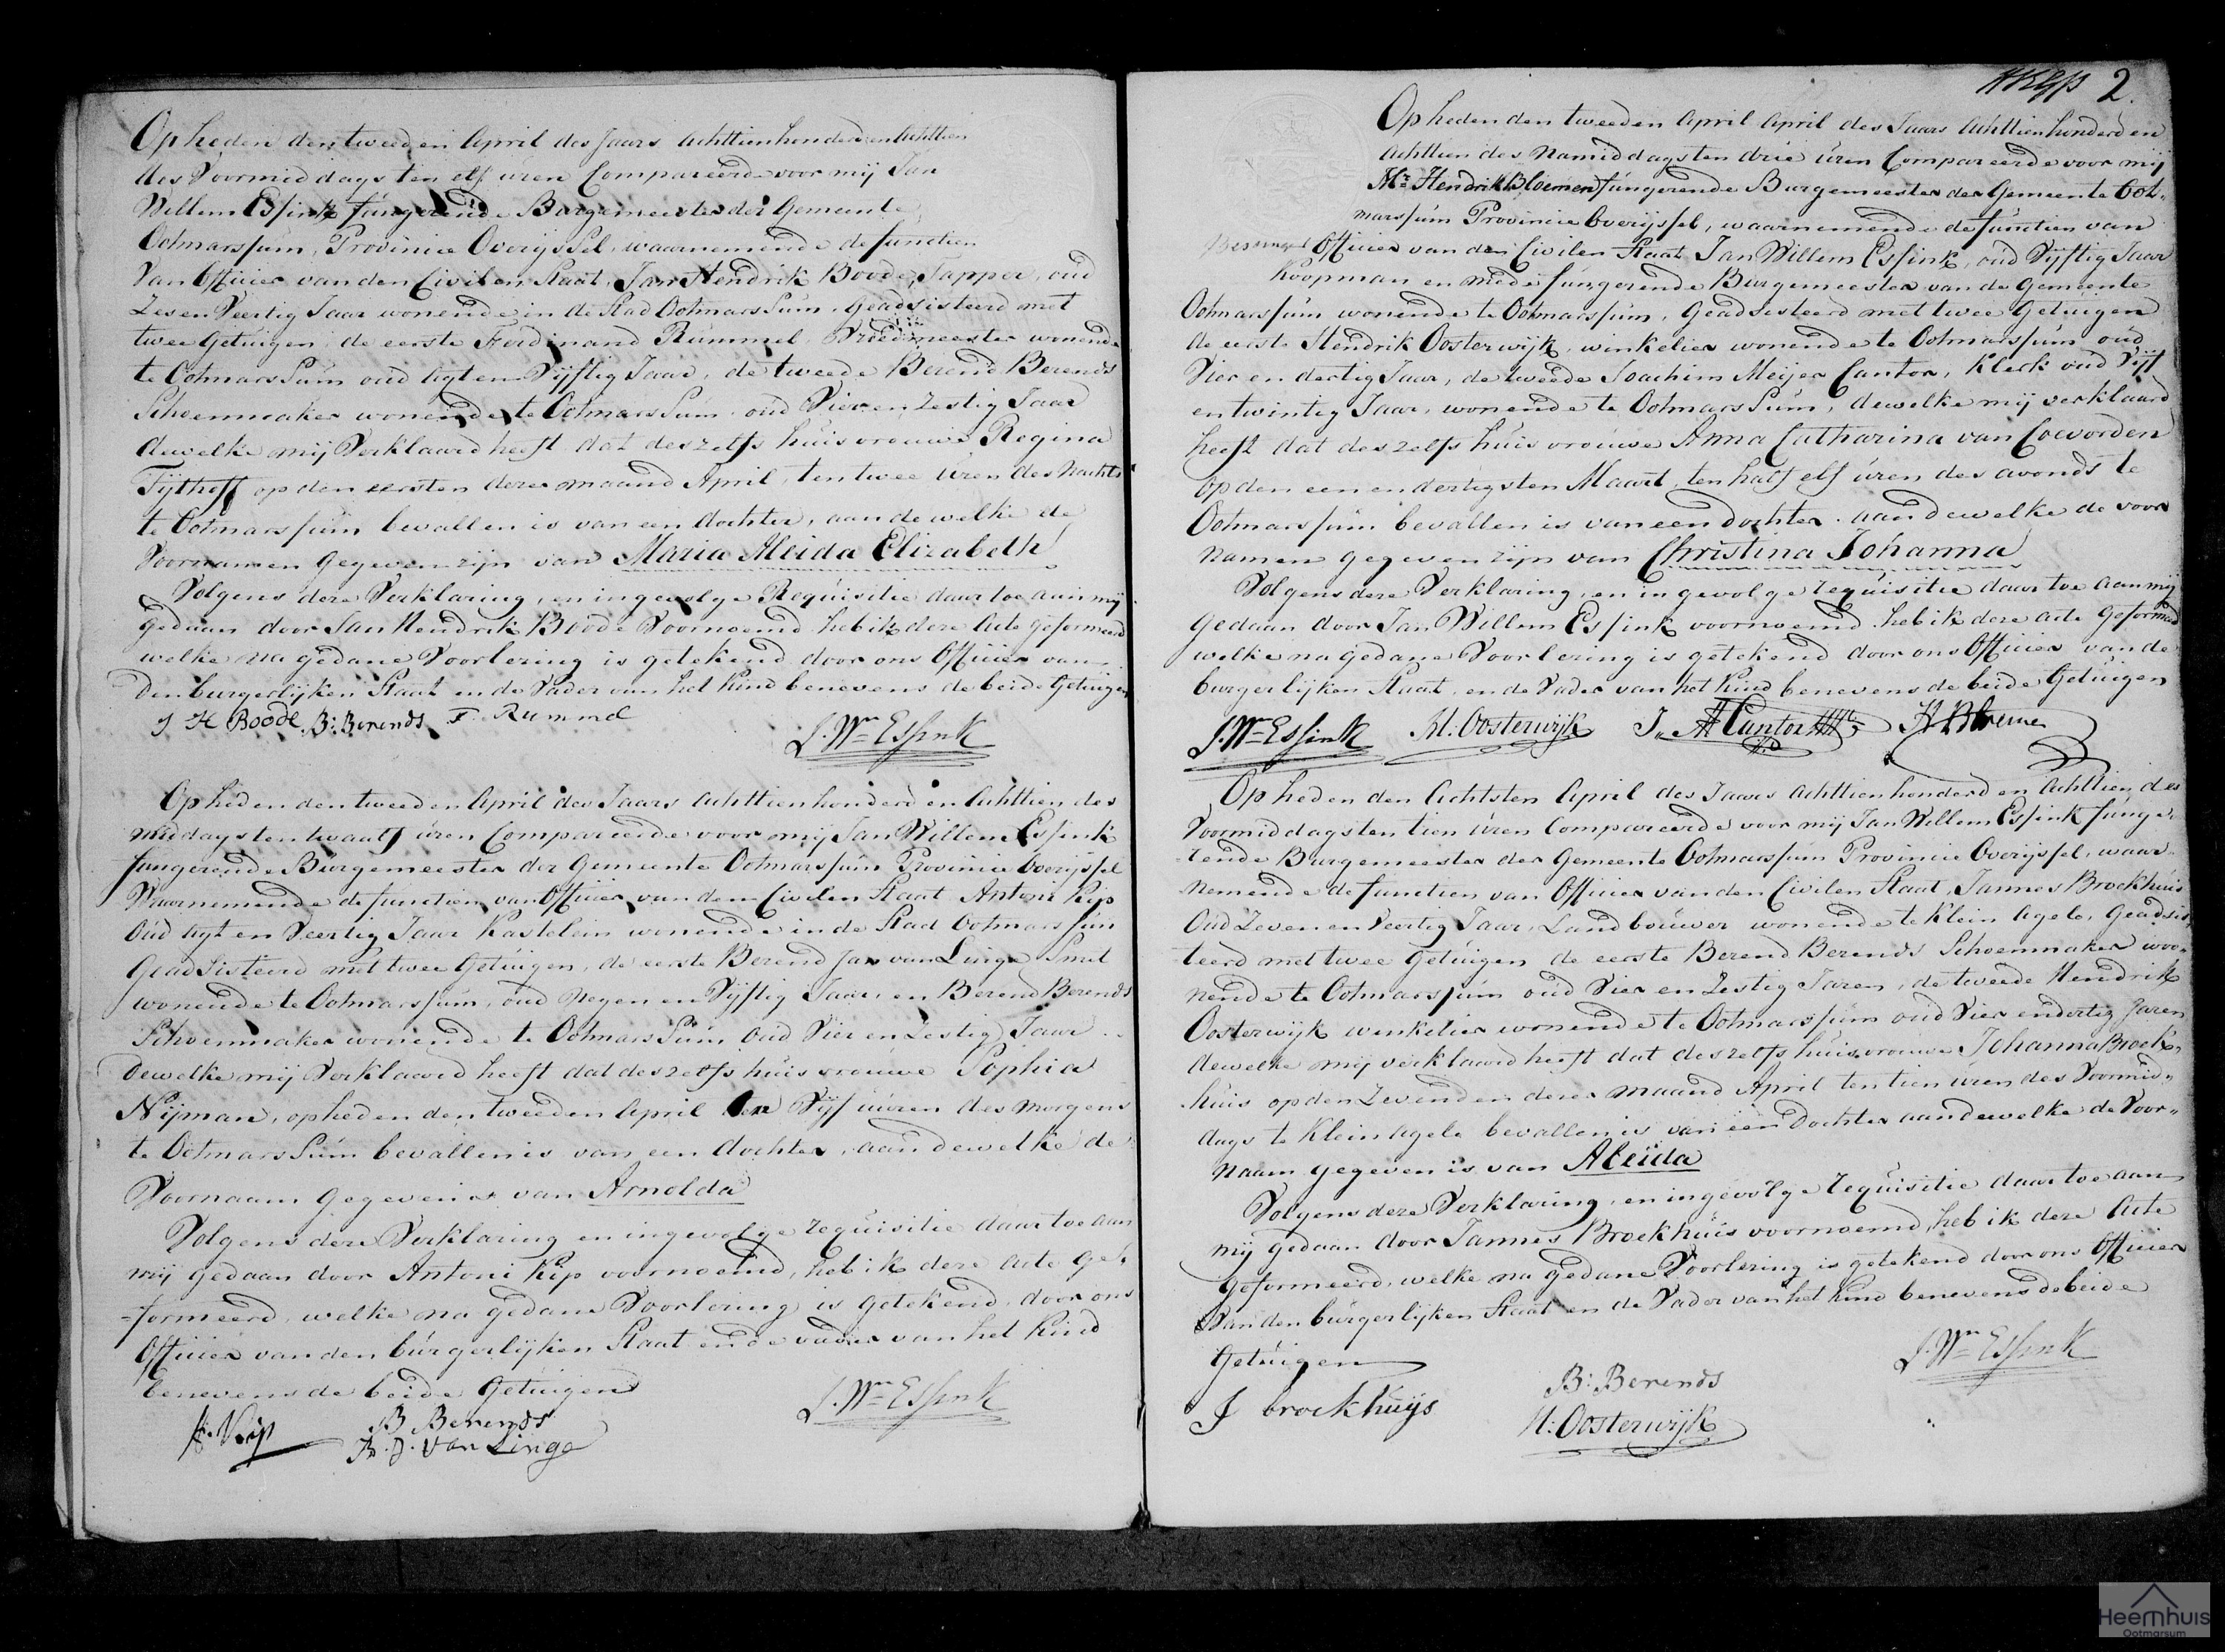 Op heden den tweeden April des Jaars Achttienhonderd en Achttien
des Voormiddags ten elf úren Compareerde voor mij Jan
Willem Essink fungerende Burgemeester der Gemeente
Ootmarssúm, Provincie Overijssel, waarnemende de functien
Van Officier van den Civilen Staat, Jan Hendrik Boode, Tapper, oud
Zes en Veertig Jaar wonende in de Stad Ootmarssúm, geadsisteerd met
twee Getuigen, de eerste Ferdinand Rúmmel, wonende
te Ootmarssúm oúd agt en Vijftig Jaar, de tweede Berend Berends
Schoenmaker wonende te Ootmarssúm, oúd Vier en Zestig Jaar
dewelke mij Verklaard heeft dat deszelfs húisvrouwe Regina
Tijthoff op den eersten dezer maand April, ten twee úren des Nachts
te Ootmarssúm bevallen is van een dochter, aan dewelke de
Voornamen Gegeven zijn van Maria Aleida Elizabeth
Volgens deze Verklaring, en ingevolge Requisitie daar toe aan mij
gedaan door Jan Hendrik Boode Voornoemd heb ik deze Acte geformeerd
welke na gedane Voorlezing is getekend door ons Officier van
den burgerlijken Staat en de Vader van het Kind benevens de beide Getuigen
J H Boode B: Berends F. Rummel
J. Wm Essink
Op heden den tweeden April des Jaars Achttienhonderd en Achttien des
middags ten twaalf úren Compareerde voor mij Jan Willem Essink
fungerende Burgemeester der Gemeente Ootmarssúm Provincie Overijssel
Waarnemende de functien van Officier van den Civilen Staat Antoni Kip
Oúd agt en Veertig Jaar Kastelein wonende in de Stad Ootmarssúm
Geadsisteerd met twee Getuigen, de eerste Berend Jan van Linge Smit
wonende te Ootmarssúm, oúd Negen en Vijftig Jaar, en Berend Berends
Schoenmaker wonende te Ootmarssúm Oúd Vier en Zestig Jaar
Dewelke mij Verklaard heeft dat deszelfs húisvrouwe Sophia
Nijman, op heden den tweeden April ten Vijf uuren des Morgens
te Ootmarssúm bevallen is van een dochter, aan dewelke de
Voornaam Gegeven is van Arnolda
Volgens deze Verklaring en ingevolge requisitie daar toe aan
mij gedaan door Antoni Kip voornoemd, heb ik deze Acte ge-
-formeerd, welke na gedane Voorlezing is getekend door ons
Officier van den búrgerlijken Staat en de vader van het Kind
benevens de beide Getuigen
A. Kip B Berends
B. J. van Linge
J. Wm Essink
2.
Op heden den tweeden April April des Jaars Achttienhonderd en
Achttien des Namiddags ten drie úren Compareerde voor mij
Mr Hendrik Bloemen fúngerende Burgemeester der Gemeente Oot-
marssúm Provincie Overijssel, waarnemende de functien van
Officier van den Civilen Staat Jan Willem Essink, oud Vijftig Jaar
Koopman en mede fúngerende Burgemeester van de Gemeente
Ootmarssúm wonende te Ootmarssúm, Geadsisteerd met twee Getuigen
de eerste Hendrik Oosterwijk, winkelier wonende te Ootmarssúm oúd
Vier en dertig Jaar, de tweede Joachim Meijer Cantor, Klerk oud Vijf
en twintig Jaar, wonende te Ootmarssúm, dewelke mij verklaard
heeft dat deszelfs húisvroúwe Anna Catharina van Coevorden
op den een en dertigsten Maart, ten half elf úren des avonds te
Ootmarssúm bevallen is van een dochter, aan dewelke de voor
namen gegeven zijn van Christina Johanna
Volgens deze Verklaring, en in gevolge requisitie daar toe aan mij
gedaan door Jan Willem Essink voornoemd heb ik deze acte geformeerd
welke na gedane Voorlezing is getekend door ons Officier van de
burgerlijken Staat, en de Vader van het Kind benevens de beide Getuigen
J. Wm Essink H. Oosterwijk J. M Cantor H Bloemen
Op heden den Achtsten April des Jaars Achttienhonderd en Achttien des
Voormiddags ten tien úren Compareerde voor mij Jan Willem Essink fúnge-
-rende Burgemeester der Gemeente Ootmarssúm Provincie Overijssel, waar-
nemende de functien van Officier van den Civilen Staat, Jannes Broekhuis
Oud Zeven en Veertig Jaar, Landboúwer wonende te Klein Agele, Geadsis-
teerd met twee Getuigen de eerste Berend Berends Schoenmaker woo-
nende te Ootmarssúm oúd Vier en Zestig Jaren, de tweede Hendrik
Oosterwijk winkelier wonende te Ootmarssúm oud Vier en dertig Jaren
dewelke mij verklaard heeft dat deszelfs huisvrouwe Johanna Broek-
huis op den Zevenden dezer maand April ten tien úren des Voormid-
dags te Klein Agele bevallen is van één Dochter aan dewelke de Voor-
naam gegeven is van Aleida
Volgens deze Verklaring, en ingevolge requisitie daar toe aan
mij gedaan door Jannes Broekhuis voornoemd, heb ik deze Acte
Geformeerd, welke na gedane Voorlezing is getekend door ons Officier
Van den búrgerlijken Staat en de Vader van het Kind benevens de beide
Getúigen
J. Wm Essink
B: Berends
J broekhuijs
H. Oosterwijk
Heemhuis
Ootmarsum